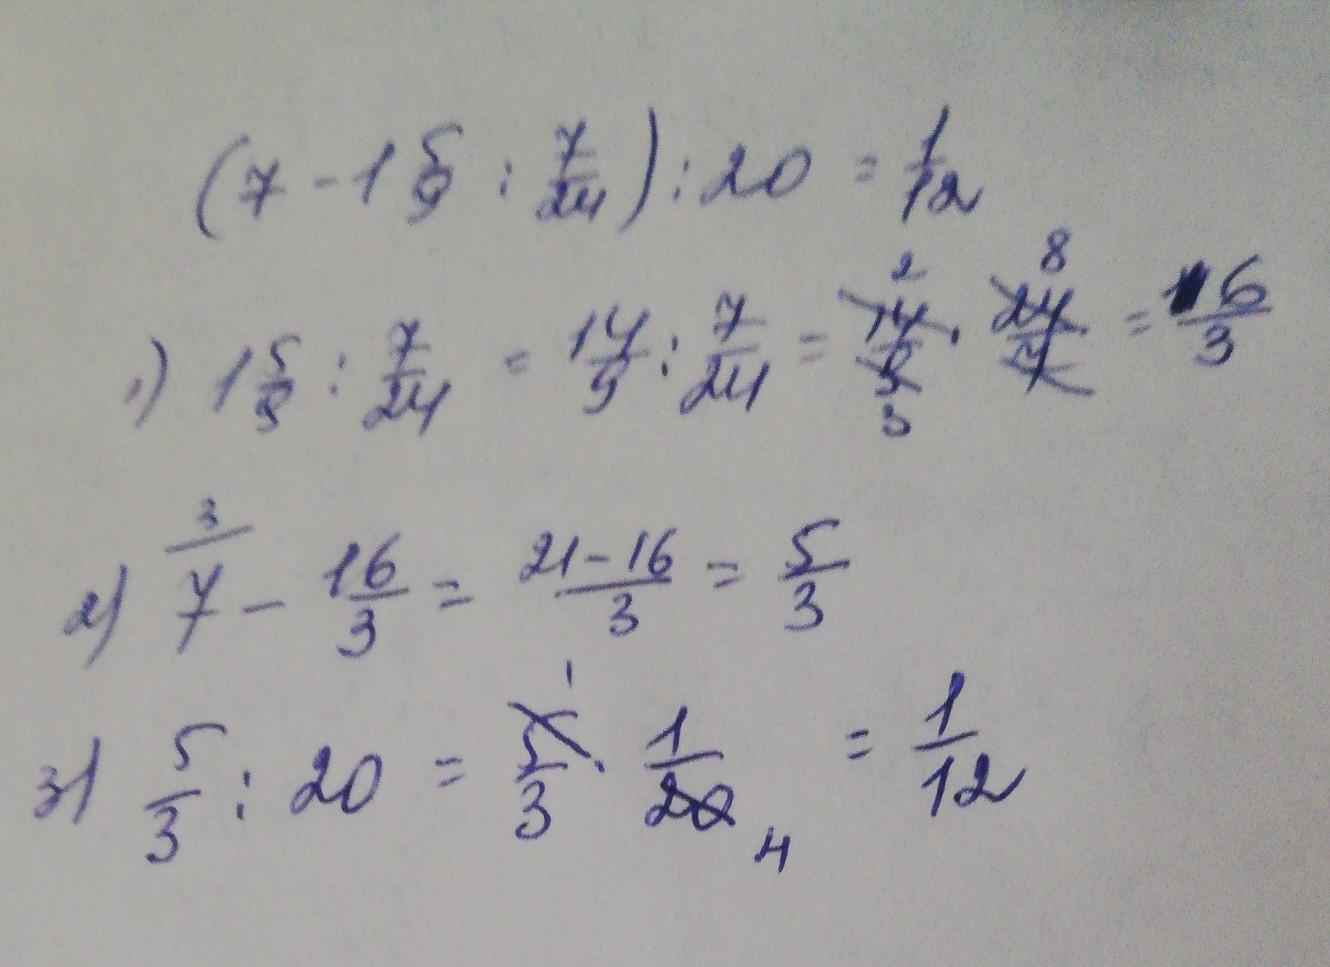 (7 - 1 5/9 : 7/24) : 20 = 1/12
1) 1 5/9 : 7/24 = 14/9 : 7/24 = 14/9 2 3 · 24/7 8 = 16/3
2) 3/ 7 - 16/3 = 21-16/3 = 5/3
3) 5/3 : 20 = 5/3 1 · 1/20 4 = 1/12